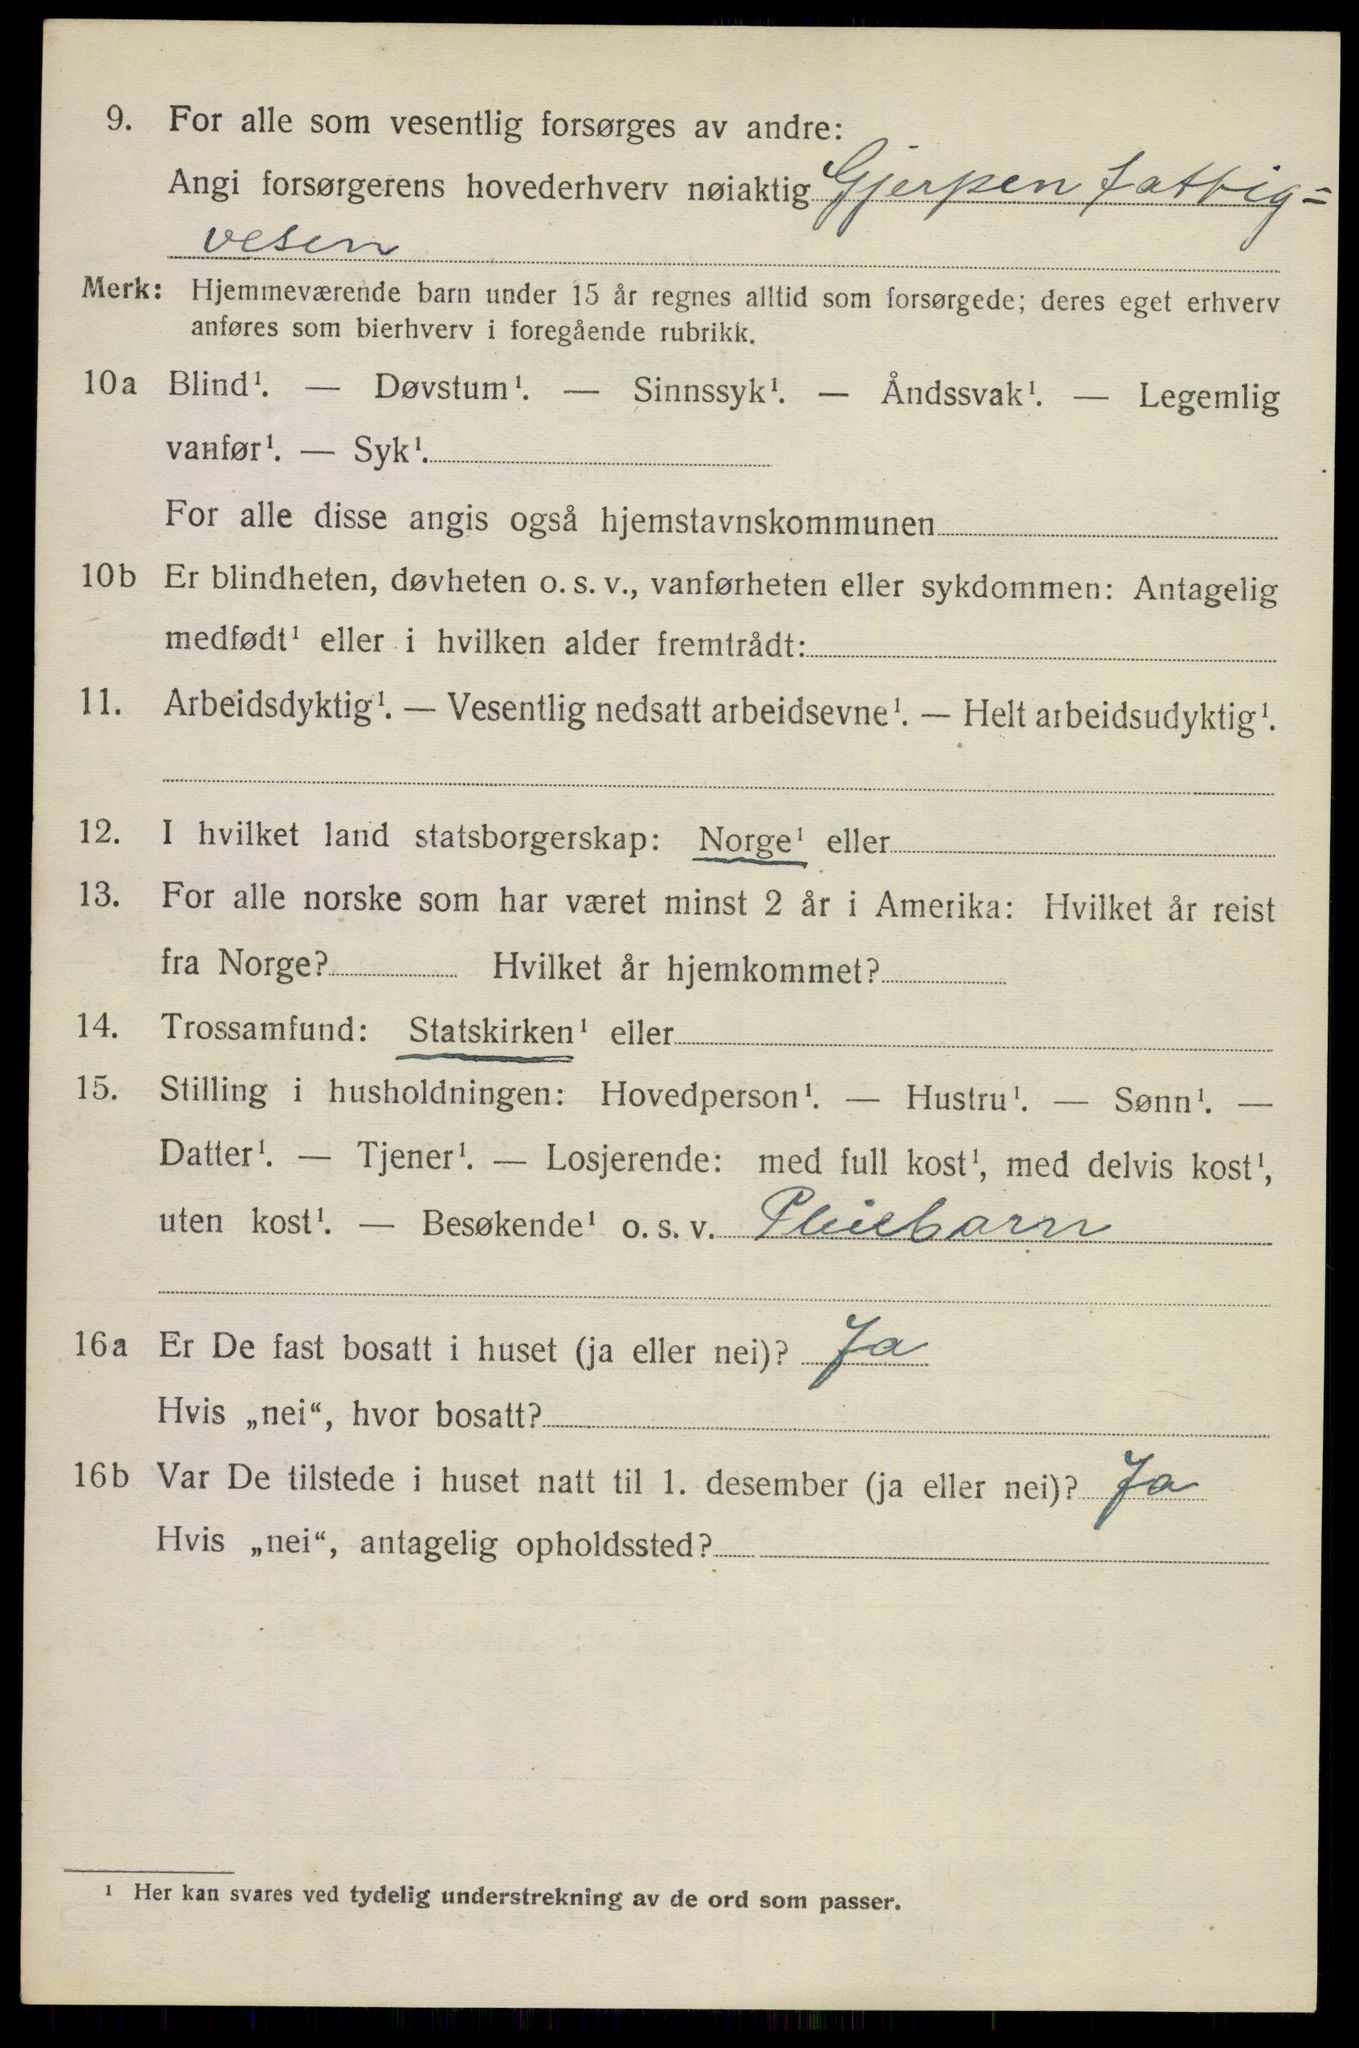 9. For alle som vesentlig forsørges av andre:
Angi forsørgerens hovederhverv nøiaktig Gjerpen fattig=
vesen
Merk: Hjemmeværende barn under 15 år regnes alltid som forsørgede; deres eget erhverv
anføres som bierhverv i foregående rubrikk.
10a Blind¹. — Døvstum¹. — Sinnssyk¹. — Åndssvak¹. — Legemlig
vanfør¹. — Syk¹.
For alle disse angis også hjemstavnskommunen
10b Er blindheten, døvheten o. s. v., vanførheten eller sykdommen: Antagelig
medfødt¹ eller i hvilken alder fremtrådt:
11. Arbeidsdyktig¹. — Vesentlig nedsatt arbeidsevne¹. — Helt arbeidsudyktig¹.
12. I hvilket land statsborgerskap: Norge¹ eller
13. For alle norske som har været minst 2 år i Amerika: Hvilket år reist
fra Norge? Hvilket år hjemkommet?
14. Trossamfund: Statskirken¹ eller
15. Stilling i husholdningen: Hovedperson¹. — Hustru¹. — Sønn¹. —
Datter¹. — Tjener¹. — Losjerende: med full kost¹, med delvis kost¹,
uten kost¹. — Besøkende¹ o. s. v. Pleiebarn
16a Er De fast bosatt i huset (ja eller nei)? Ja
Hvis „nei“, hvor bosatt?
16b Var De tilstede i huset natt til 1. desember (ja eller nei)? Ja
Hvis „nei“, antagelig opholdssted?
¹ Her kan svares ved tydelig understrekning av de ord som passer.